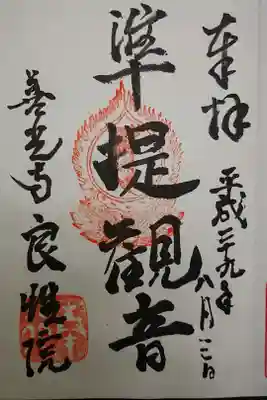 奉拝
平成二十九年
八月三日
準提觀音
善光寺
良性院